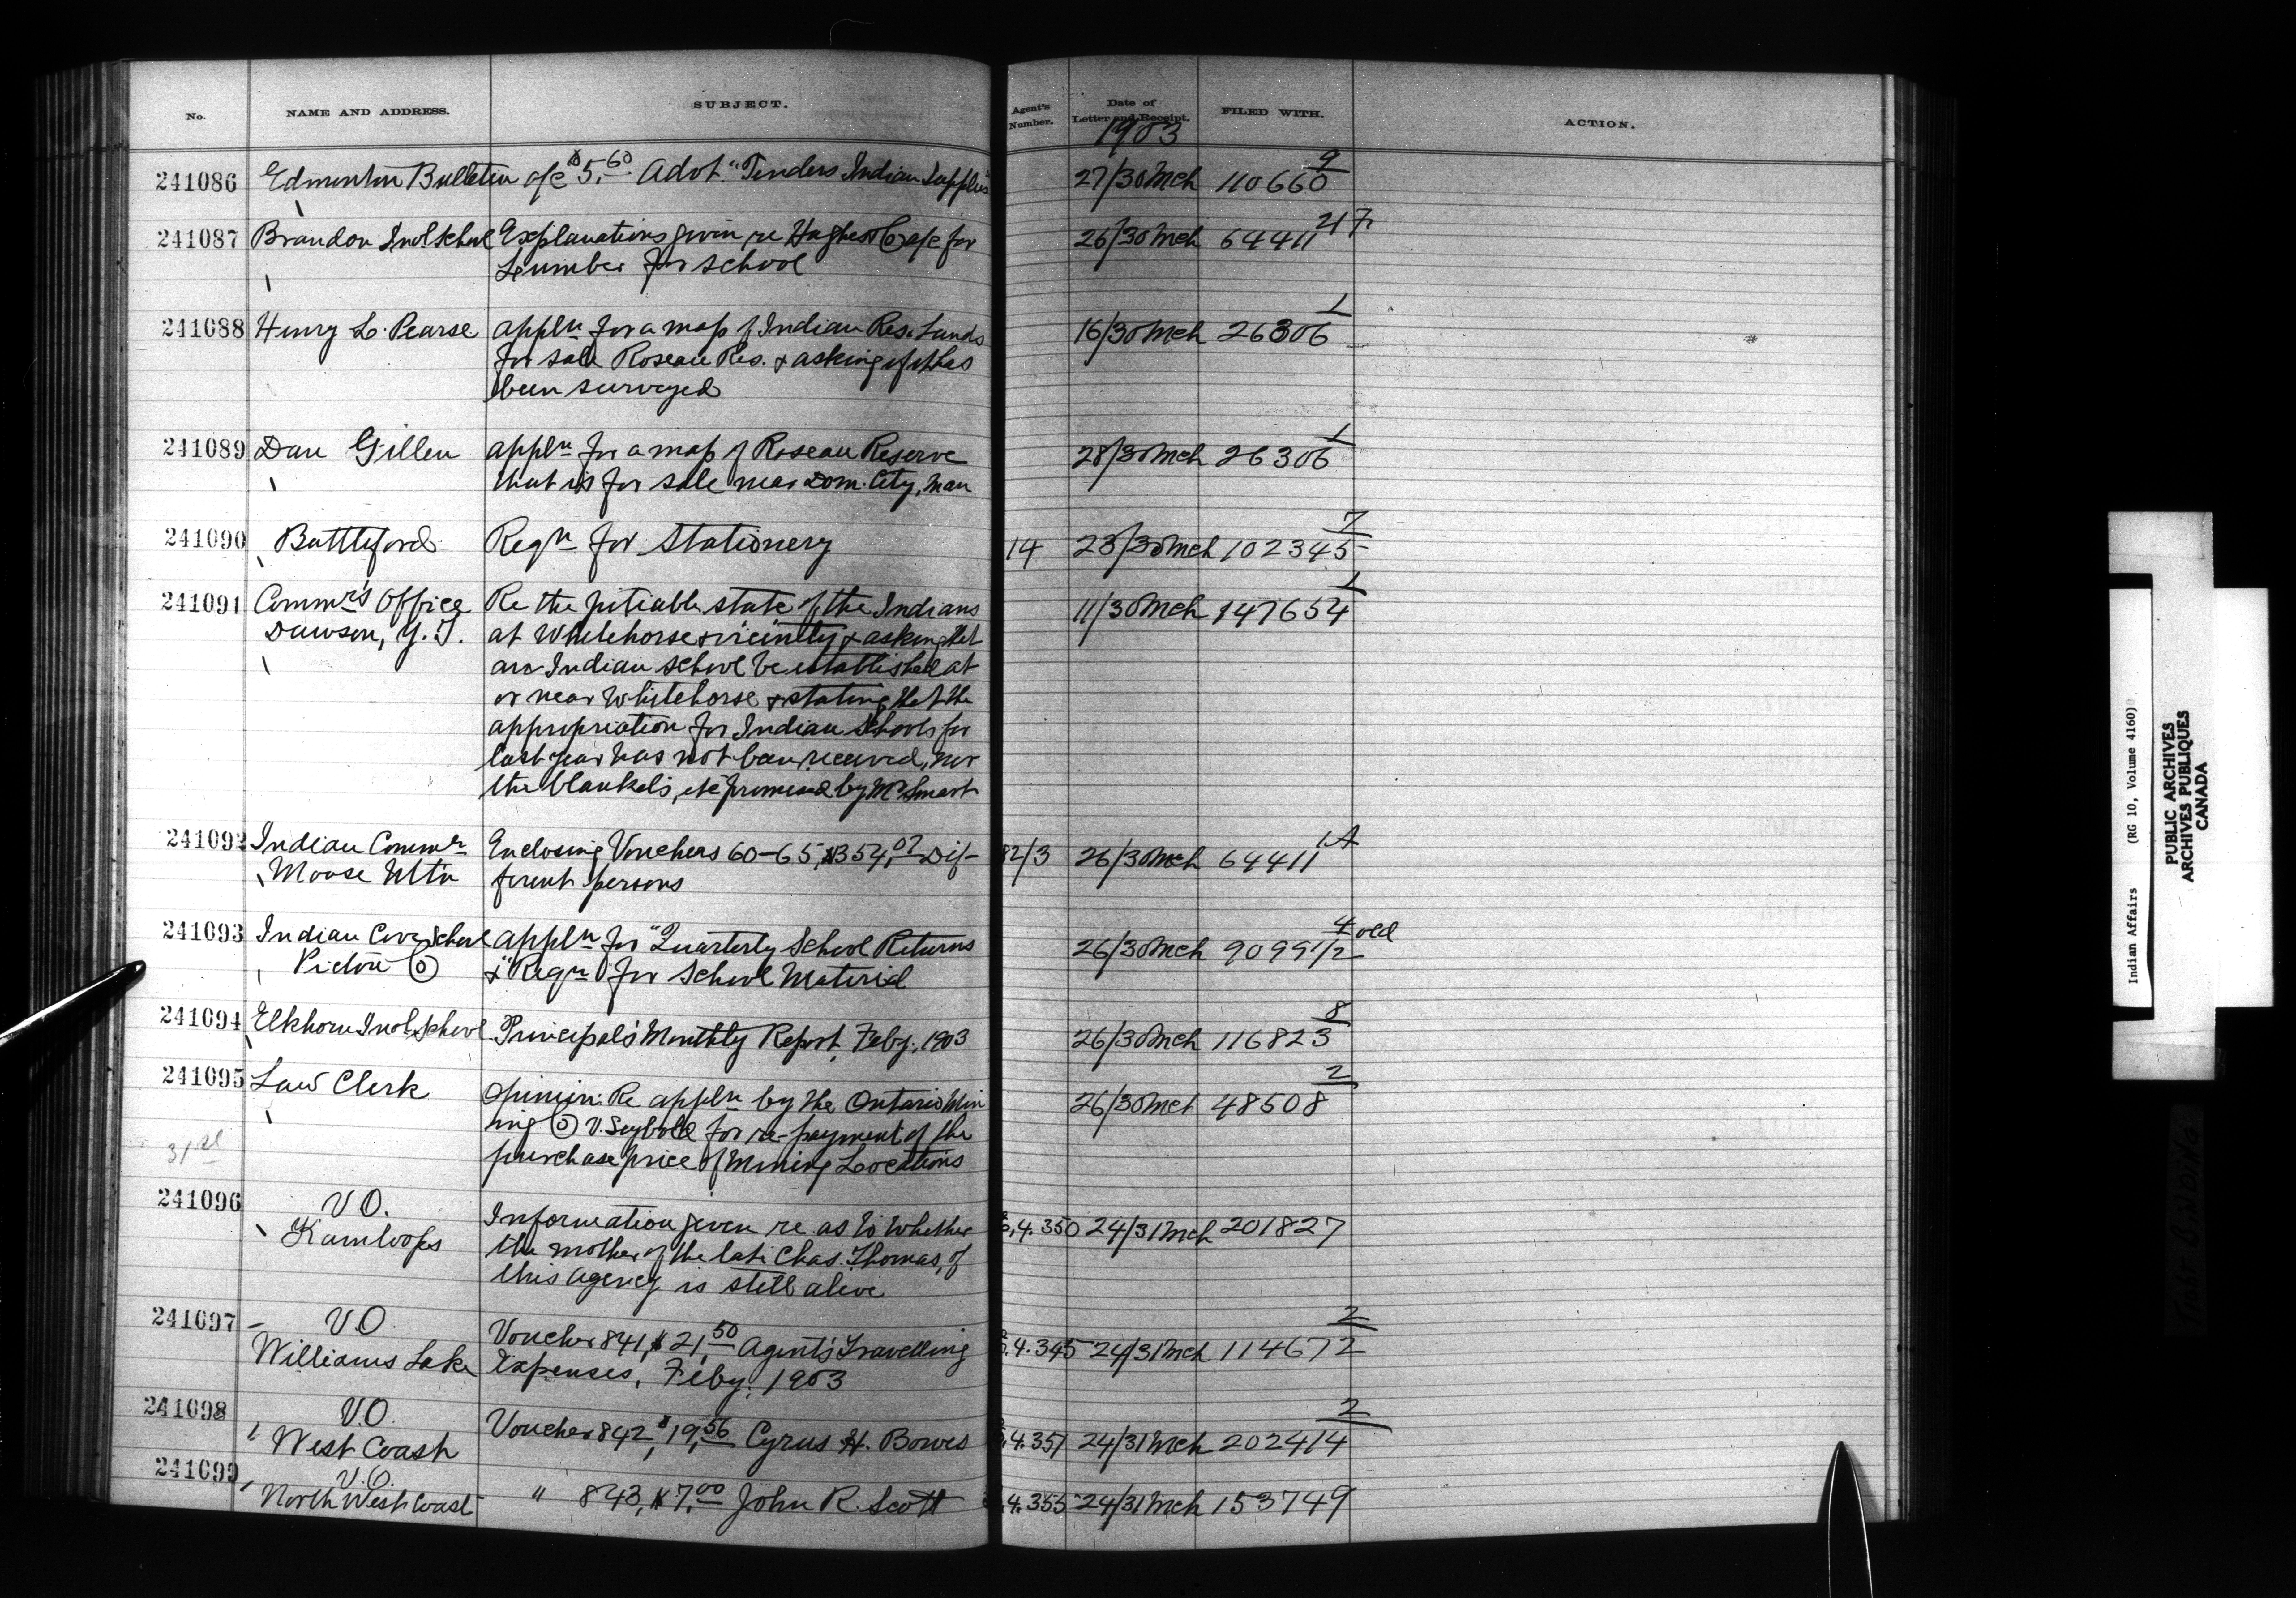 No. NAME AND ADDRESS. SUBJECT. Agent's Number. Date of Letter and Receipt. FILED WITH. ACTION.
1903
241086 Edmonton Bulletin a/c $5.60 Advt. "Tenders Indian Supplies" 27/30 Mch 110660 9
241087 Brandon Indl School Explanations given re Hughes & Co a/c for 26/30 Mch 64411 217
Lumber for School
241088 Henry L. Pearse appln for a map of Indian Res. Lands 16/30 Mch 26306 1
for sale Roseau Res. & asking if it has
been surveyed
241089 Dan Gillen appln for a map of Roseau Reserve 28/30 Mch 26306 1
that is for sale near Dom. City, Man
241090 Battleford Reqn for Stationery 14 23/30 Mch 102345 7
241091 Commr's Office Re the pitiable state of the Indians 11/30 Mch 147654 1
Dawson, Y.T. at Whitehorse & vicinity & asking that
an Indian School be established at
or near Whitehorse & stating that the
appropriation for Indian Schools for
last year has not been received, nor
the blankets, etc promised by Mr Smart
241092 Indian Commr Enclosing Vouchers 60-65, $354.07 Dif- 82/3 26/30 Mch 64411 1A
Moose Mtn ferent persons
241093 Indian Cove School appln for "Quarterly School Returns 26/30 Mch 90991/2 4 old
Pictou Co & "Reqn for School Material
241094 Elkhorn Indl School Principal's Monthly Report, Feby, 1903 26/30 Mch 116823 8
241095 Law Clerk Opinion: Re appln by the Ontario Min 26/30 Mch 48508 2
ing Co v. Seybold for re-payment of the
31st purchase price of Mining Locations
241096 V.O. Information given re as to whether 4.350 24/31 Mch 201827
Kamloops the mother of the late Chas. Thomas, of
this agency is still alive
241097 V.O. Voucher 841, $21.50 Agent's Travelling 4.345 24/31 Mch 114672 2
Williams Lake Expenses, Feby. 1903
241098 V.O. Voucher 842, $19.56 Cyrus H. Bowes 4.351 24/31 Mch 202414 2
West Coast
241099 V.O. " 843, $7.00 John R. Scott 4.355 24/31 Mch 153749
North West Coast
Indian Affairs (RG 10, Volume 4160)
PUBLIC ARCHIVES
ARCHIVES PUBLIQUES
CANADA